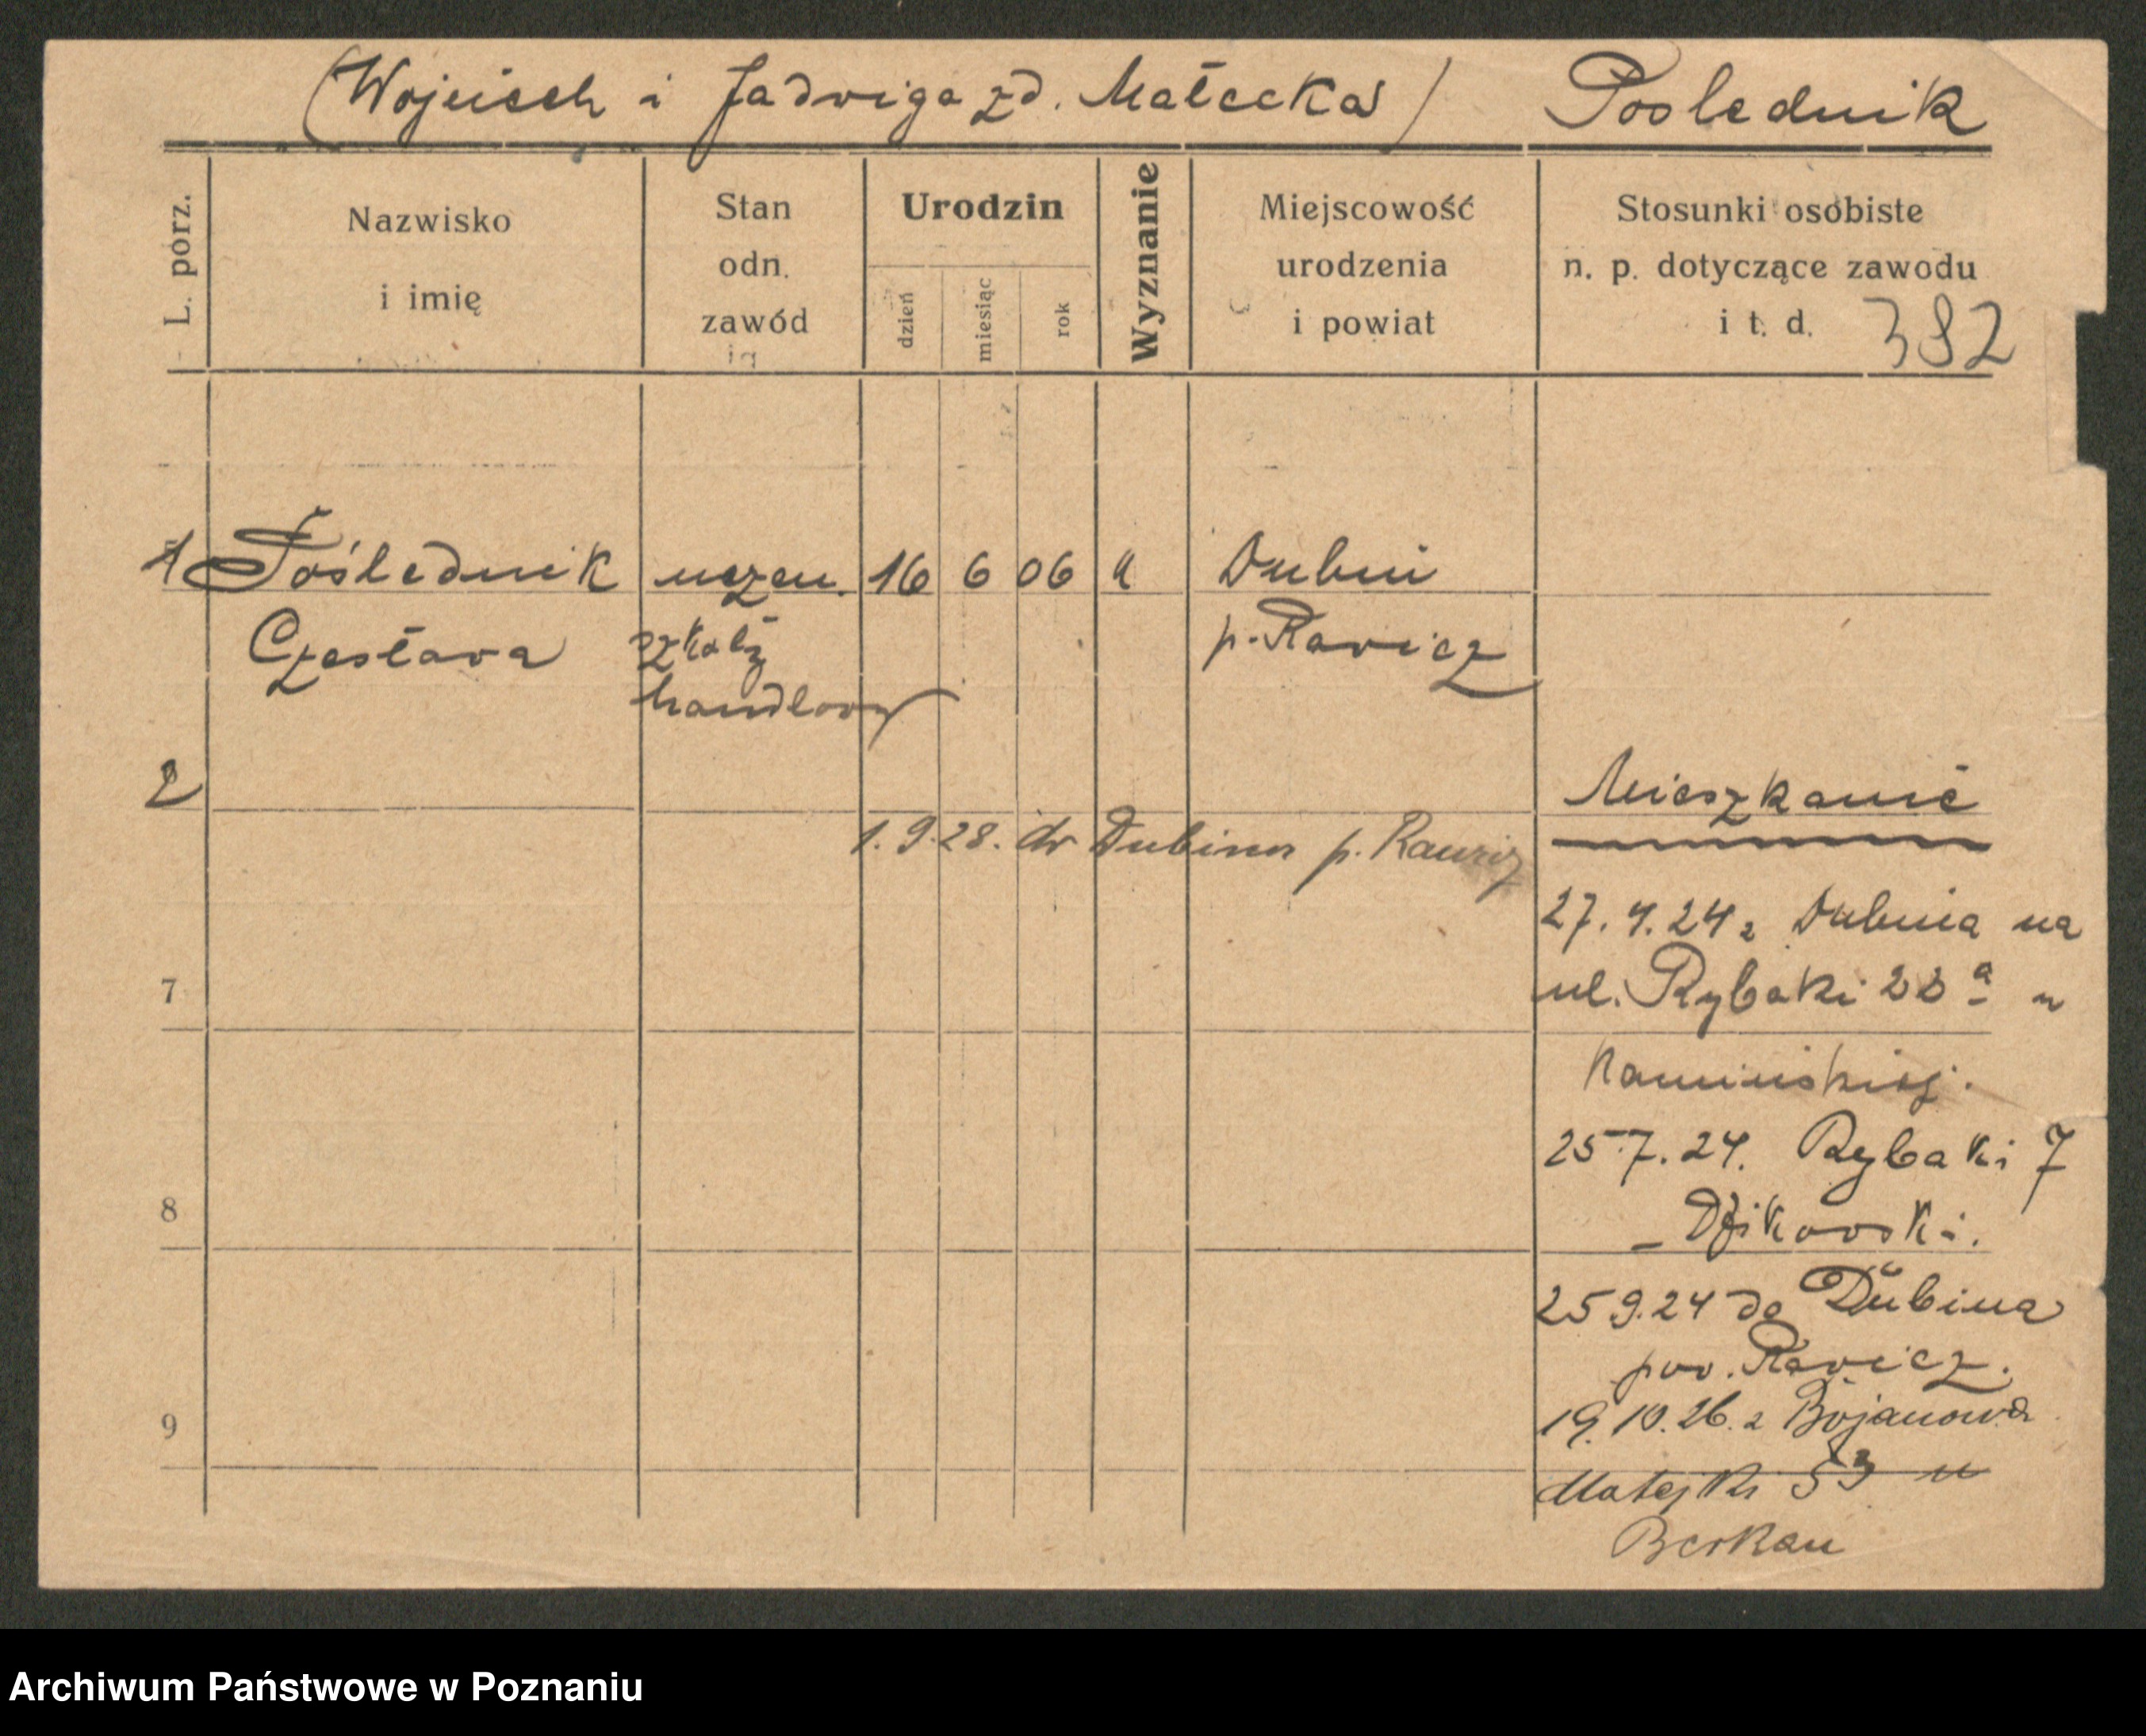 (Wojciech i Jadwiga zd. Małecka) Poślednik
L. porz.
Nazwisko
i imię
Stan
odn.
zawód
Urodzin
dzień
miesiąc
rok
Wyznanie
Miejscowość
urodzenia
i powiat
Stosunki osobiste
n. p. dotyczące zawodu
i t. d.
382
1 Poślednik uczen. 16 6 06 k Dubin
Czesława szkoły p. Rawicz
handlowy
2
Mieszkanie
1.9.28. do Dubina p. Rawicz
27.4.24 z Dubina na
7
ul. Rybaki 22a u
Kamińskiej.
25.7.24. Rybaki 7
8
- Dzikowski.
25 9.24 do Dubina
pow. Rawicz.
9
19.10.26. z Bojanowa
Matejki 53 u
Berkan
Archiwum Państwowe w Poznaniu